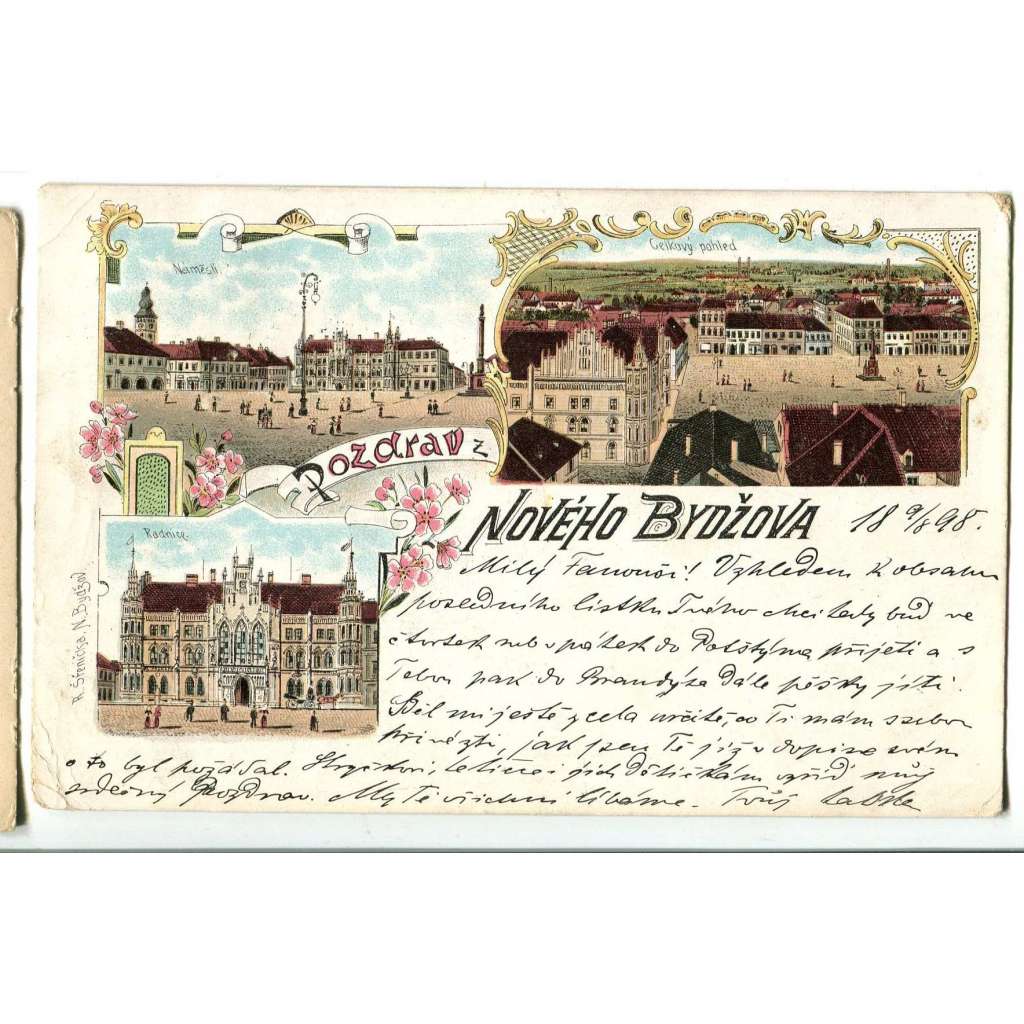 Náměstí
Celkový pohled
Pozdrav z
Nového Bydžova
Radnice
R. Střenička, N. Bydžov
18 9/8 98.
Milý Fanouši! Vzhledem k obsahu
posledního lístku Tvého chci tedy buď ve
čtvrtek neb v pátek do Potštýna přijeti a s
Tebou pak do Brandýsa dále pěšky jíti.
mi ještě zcela určitě, co Ti mám sebou
přivézti, jak jsem Tě již v dopise svém
o to byl požádal. Strýčkovi, tetičce i jich dětičkám vyřiď můj
srdečný Pozdrav. My Tě všichni líbáme. Tvůj